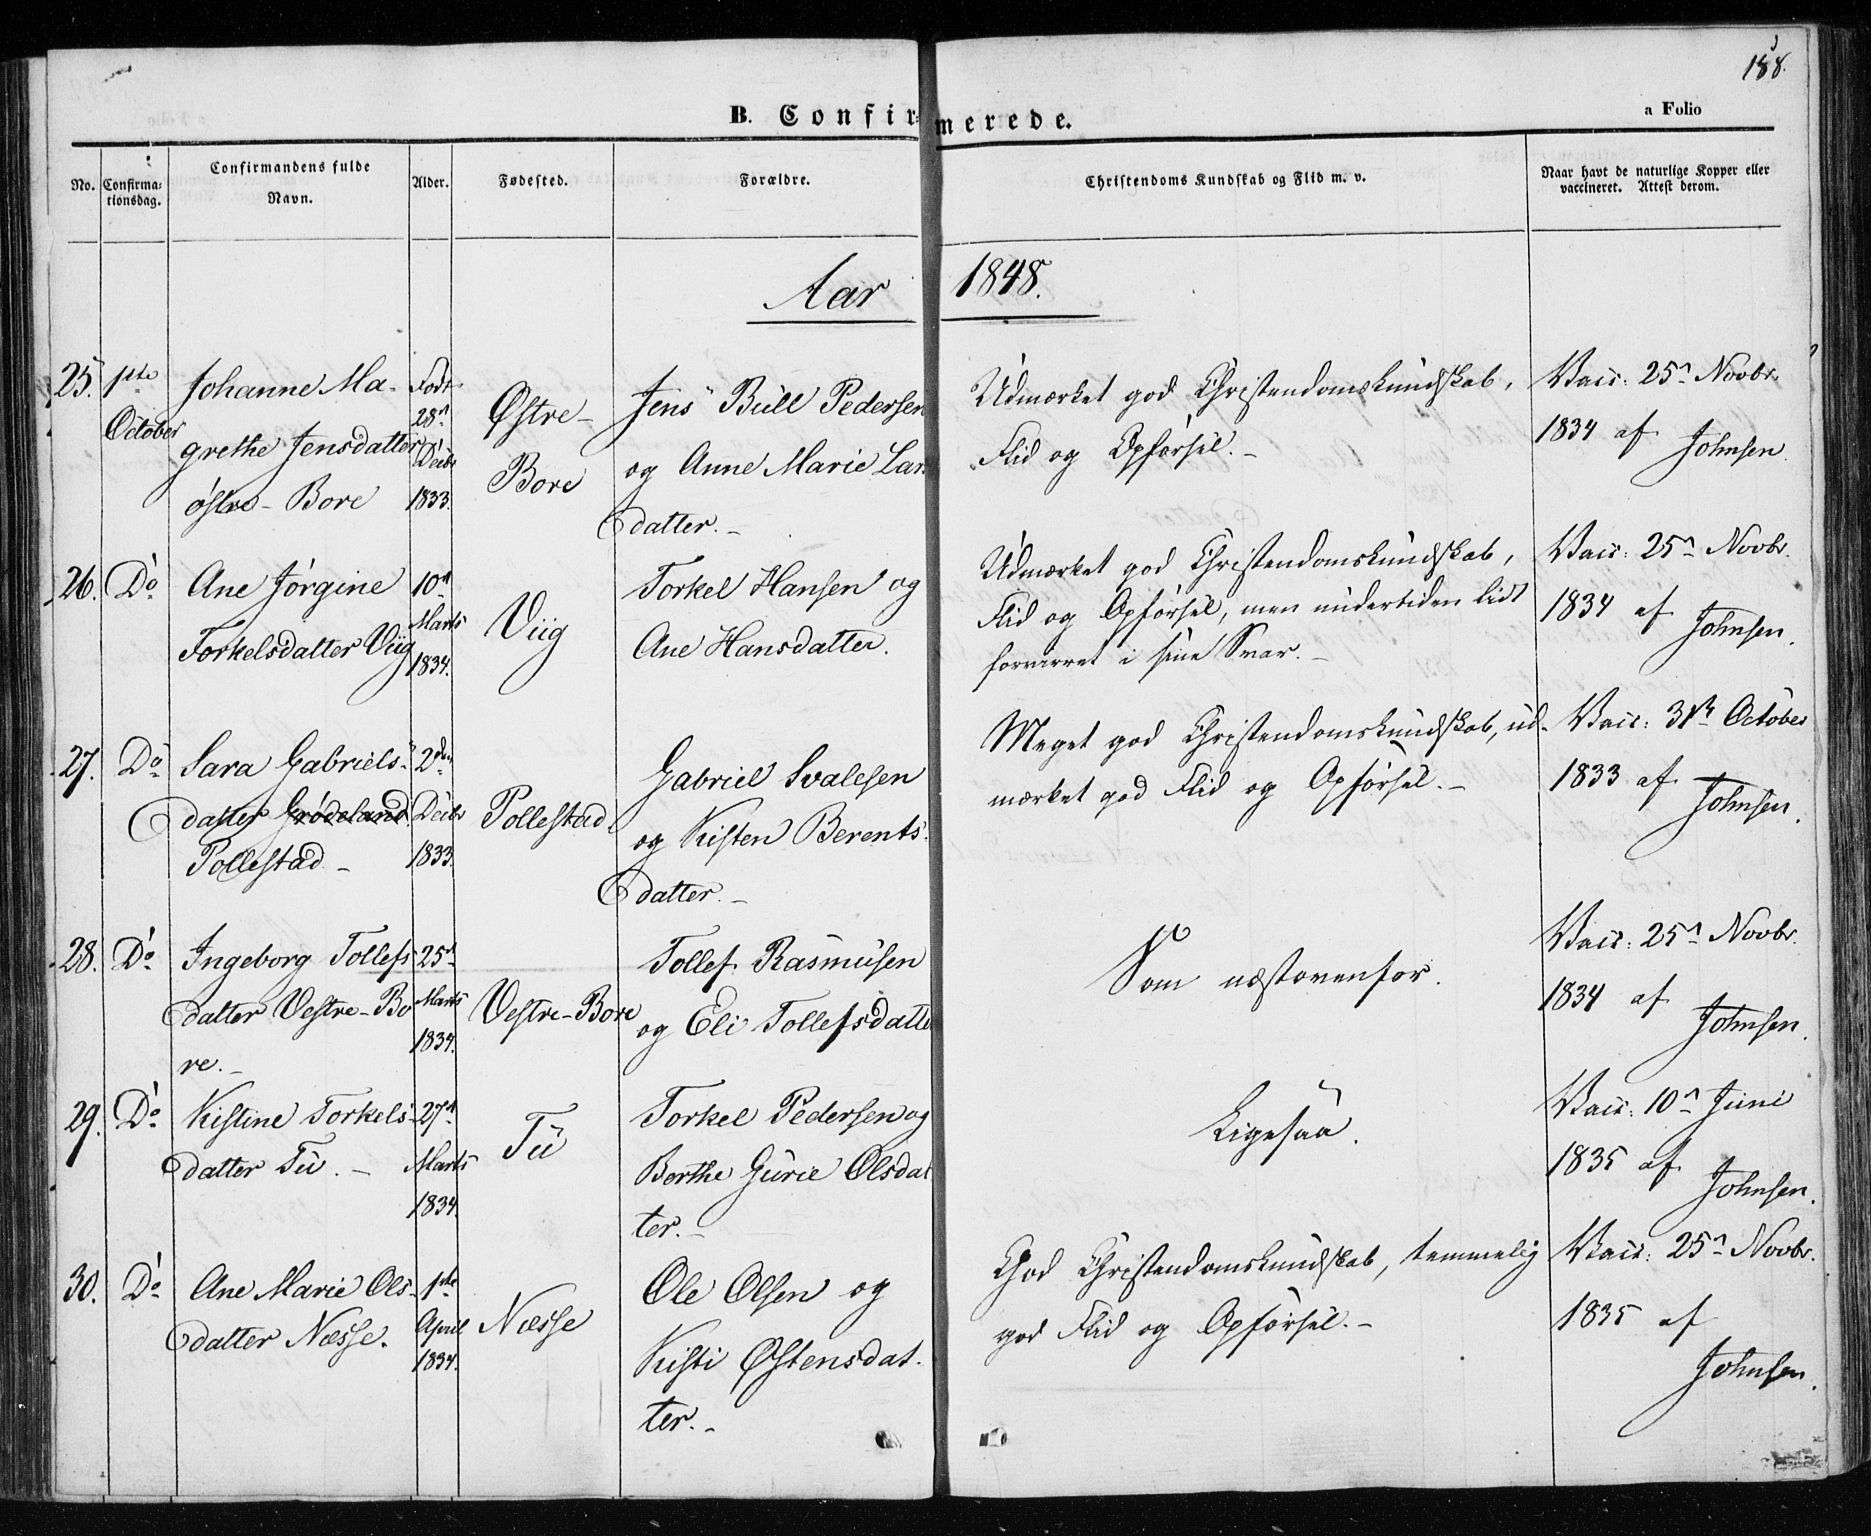 188.
B. Confirmerede.
a Folio
No.
Confirmationsdag.
Confirmandens fulde Navn.
Alder.
Fødested.
Forældre.
Christendoms Kundskab og Flid m. v.
Naar havt de naturlige Kopper eller vaccineret. Attest derom.
Aar 1848.
25.
1ste October
Johanne Ma-
grethe Jensdatter
østre-Bore
Født
28d
Decbr
1833.
Østre-
Bore
Jens Bull Pedersen
og Anne Marie Lars
datter.-
Udmærket god Christendomskundskab,
Flid og Opførsel.-
Vacc: 25d Novbr.
1834 af
Johnsen.
26.
Do
Ane Jørgine
Torkelsdatter Viig
10d
Marts
1834.
Viig
Torkel Hansen og
Ane Hansdatter.
Udmærket god Christendomskundskab,
Flid og Opførsel, men undertiden lidt
forvirret i sine Svar.-
Vacc: 25d Novbr.
1834 af
Johnsen.
27.
Do
Sara Gabriels-
datter Grødeland
Pollestad-
2den
Decbr
1833.
Pollestad
Gabriel Svalesen
og Kisten Berents-
datter.-
Meget god Christendomskundskab, ud-
mærket god Flid og Opførsel.-
Vacc: 31te October
1833 af
Johnsen.
28.
Do
Ingeborg Tollefs
datter Vestre-Bo
re.-
25d
Marts
1834.
Vestre-Bore
Tollef Rasmusen
og Eli Tollefsdatte
Som næstovenfor.
Vacc: 25d Novbr.
1834 af
Johnsen.
29.
Do
Kistine Torkels-
datter Tu.-
27d
Marts
1834.
Tu
Torkel Pedersen og
Berthe Gurie Olsdat
ter.-
Ligesaa.
Vacc: 10d Juni
1835 af
Johnsen.
30.
Do
Ane Marie Ols-
datter Næsse.
1ste
April
1834.
Næsse
Ole Olsen og
Kisti Østensdat-
ter.-
God Christendomskundskab, temmelig
god Flid og Opførsel.-
Vacc: 25d Novbr.
1835 af
Johnsen.